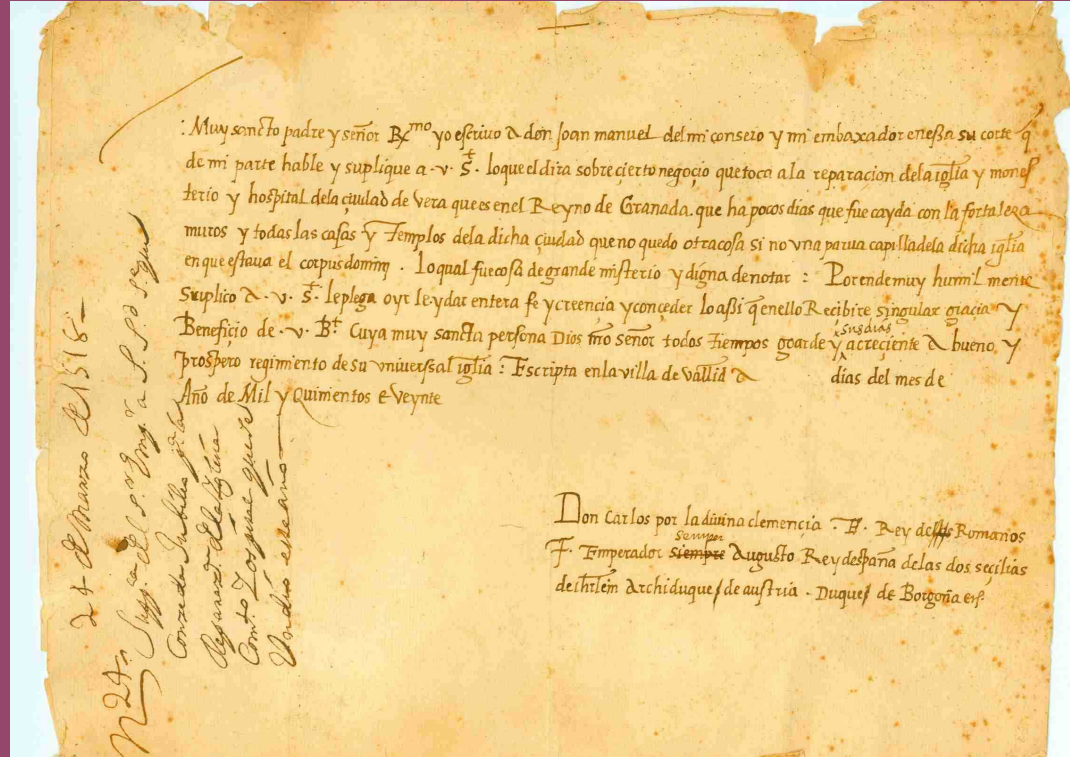 : Muy sancto padre y señor Rmo yo escriuo a don Joan manuel del mi consejo y mi embaxador en essa su corte q̃
de mi parte hable y suplique a .v. St. lo que el dira sobre cierto negoçio que toca a la reparaçion dela iglia y mones
terio y hospital dela çiudad de vera que es en el Reyno de Granada. que ha pocos dias que fue cayda con la fortaleza
muros y todas las casas y Templos dela dicha çiudad que no quedo otra cosa si no vna parua capilla dela dicha iglia
en que estaua el corpus dominj . Lo qual fue cosa de grande misterio y digna de notar : Por ende muy humilmente
suplico a .v. St. le plega oyrle y dar entera fe y creencia y conçeder lo assi q̃ en ello Recibire singular graçia y
Benefiçio de .v. Bt. Cuya muy sancta persona Dios nro señor todos tiempos goarde y sus dias acreçiente a bueno y
prospero regimiento de su vniuerssal iglia : Escripta en la villa de vallid a dias del mes de
Año de Mil y Quinientos e Veynte
Don Carlos por la diuina clemençia . E. Rey de Romanos
Semper
F. Emperador siempre Augusto Rey despaña delas dos seçilias
de ihrlem Archiduque de austria . Duque de Borgoña etc.
24 de Marzo de 1518
N 24
Conzeda Jubileo